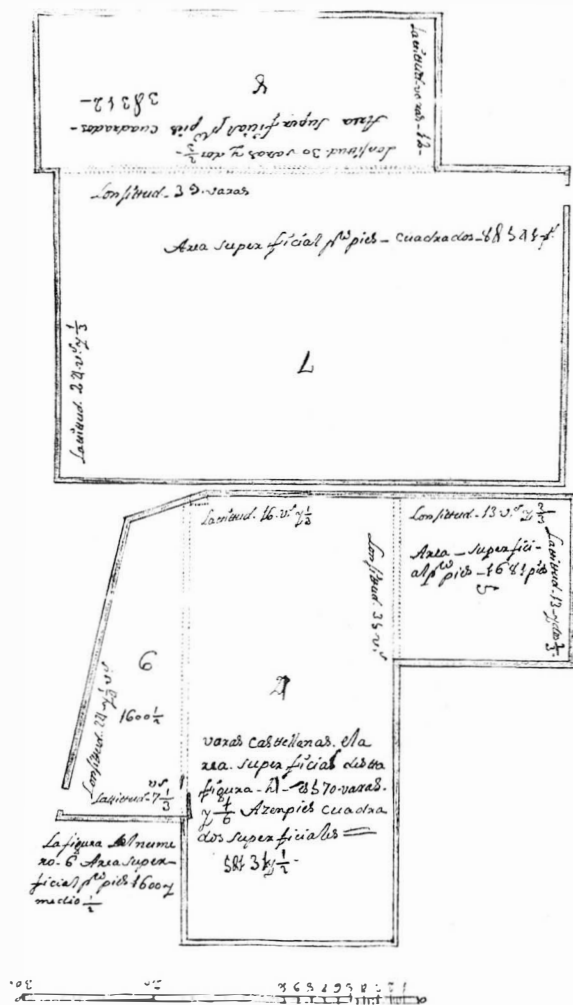 8
Latitud varas 12
Longitud 30 varas y dos 2/3
Area superficial p.r pies cuadrados
38312
Longitud 39 varas
Area superficial p.r pies cuadrados
Latitud 24 v.s y 1/3
7
Latitud 16 v.s y 1/3
Longitud 13 v.s y 2/3
Area superfici-
al p.r pies 1681 pies
5
Latitud 13 y dos 2/3
Longitud 35 v.s
6
1600 1/2
Longitud 24 v.s y
va
Latitud 7 1/3
4
varas castellanas. ela
rea. superficial desta
figura 570 varas.
y 1/6 Azenpies cuadra
dos superficiales
La figura del nume
ro 6 Area super-
ficial p.r pies 1600 y
medio 1/2
30 20